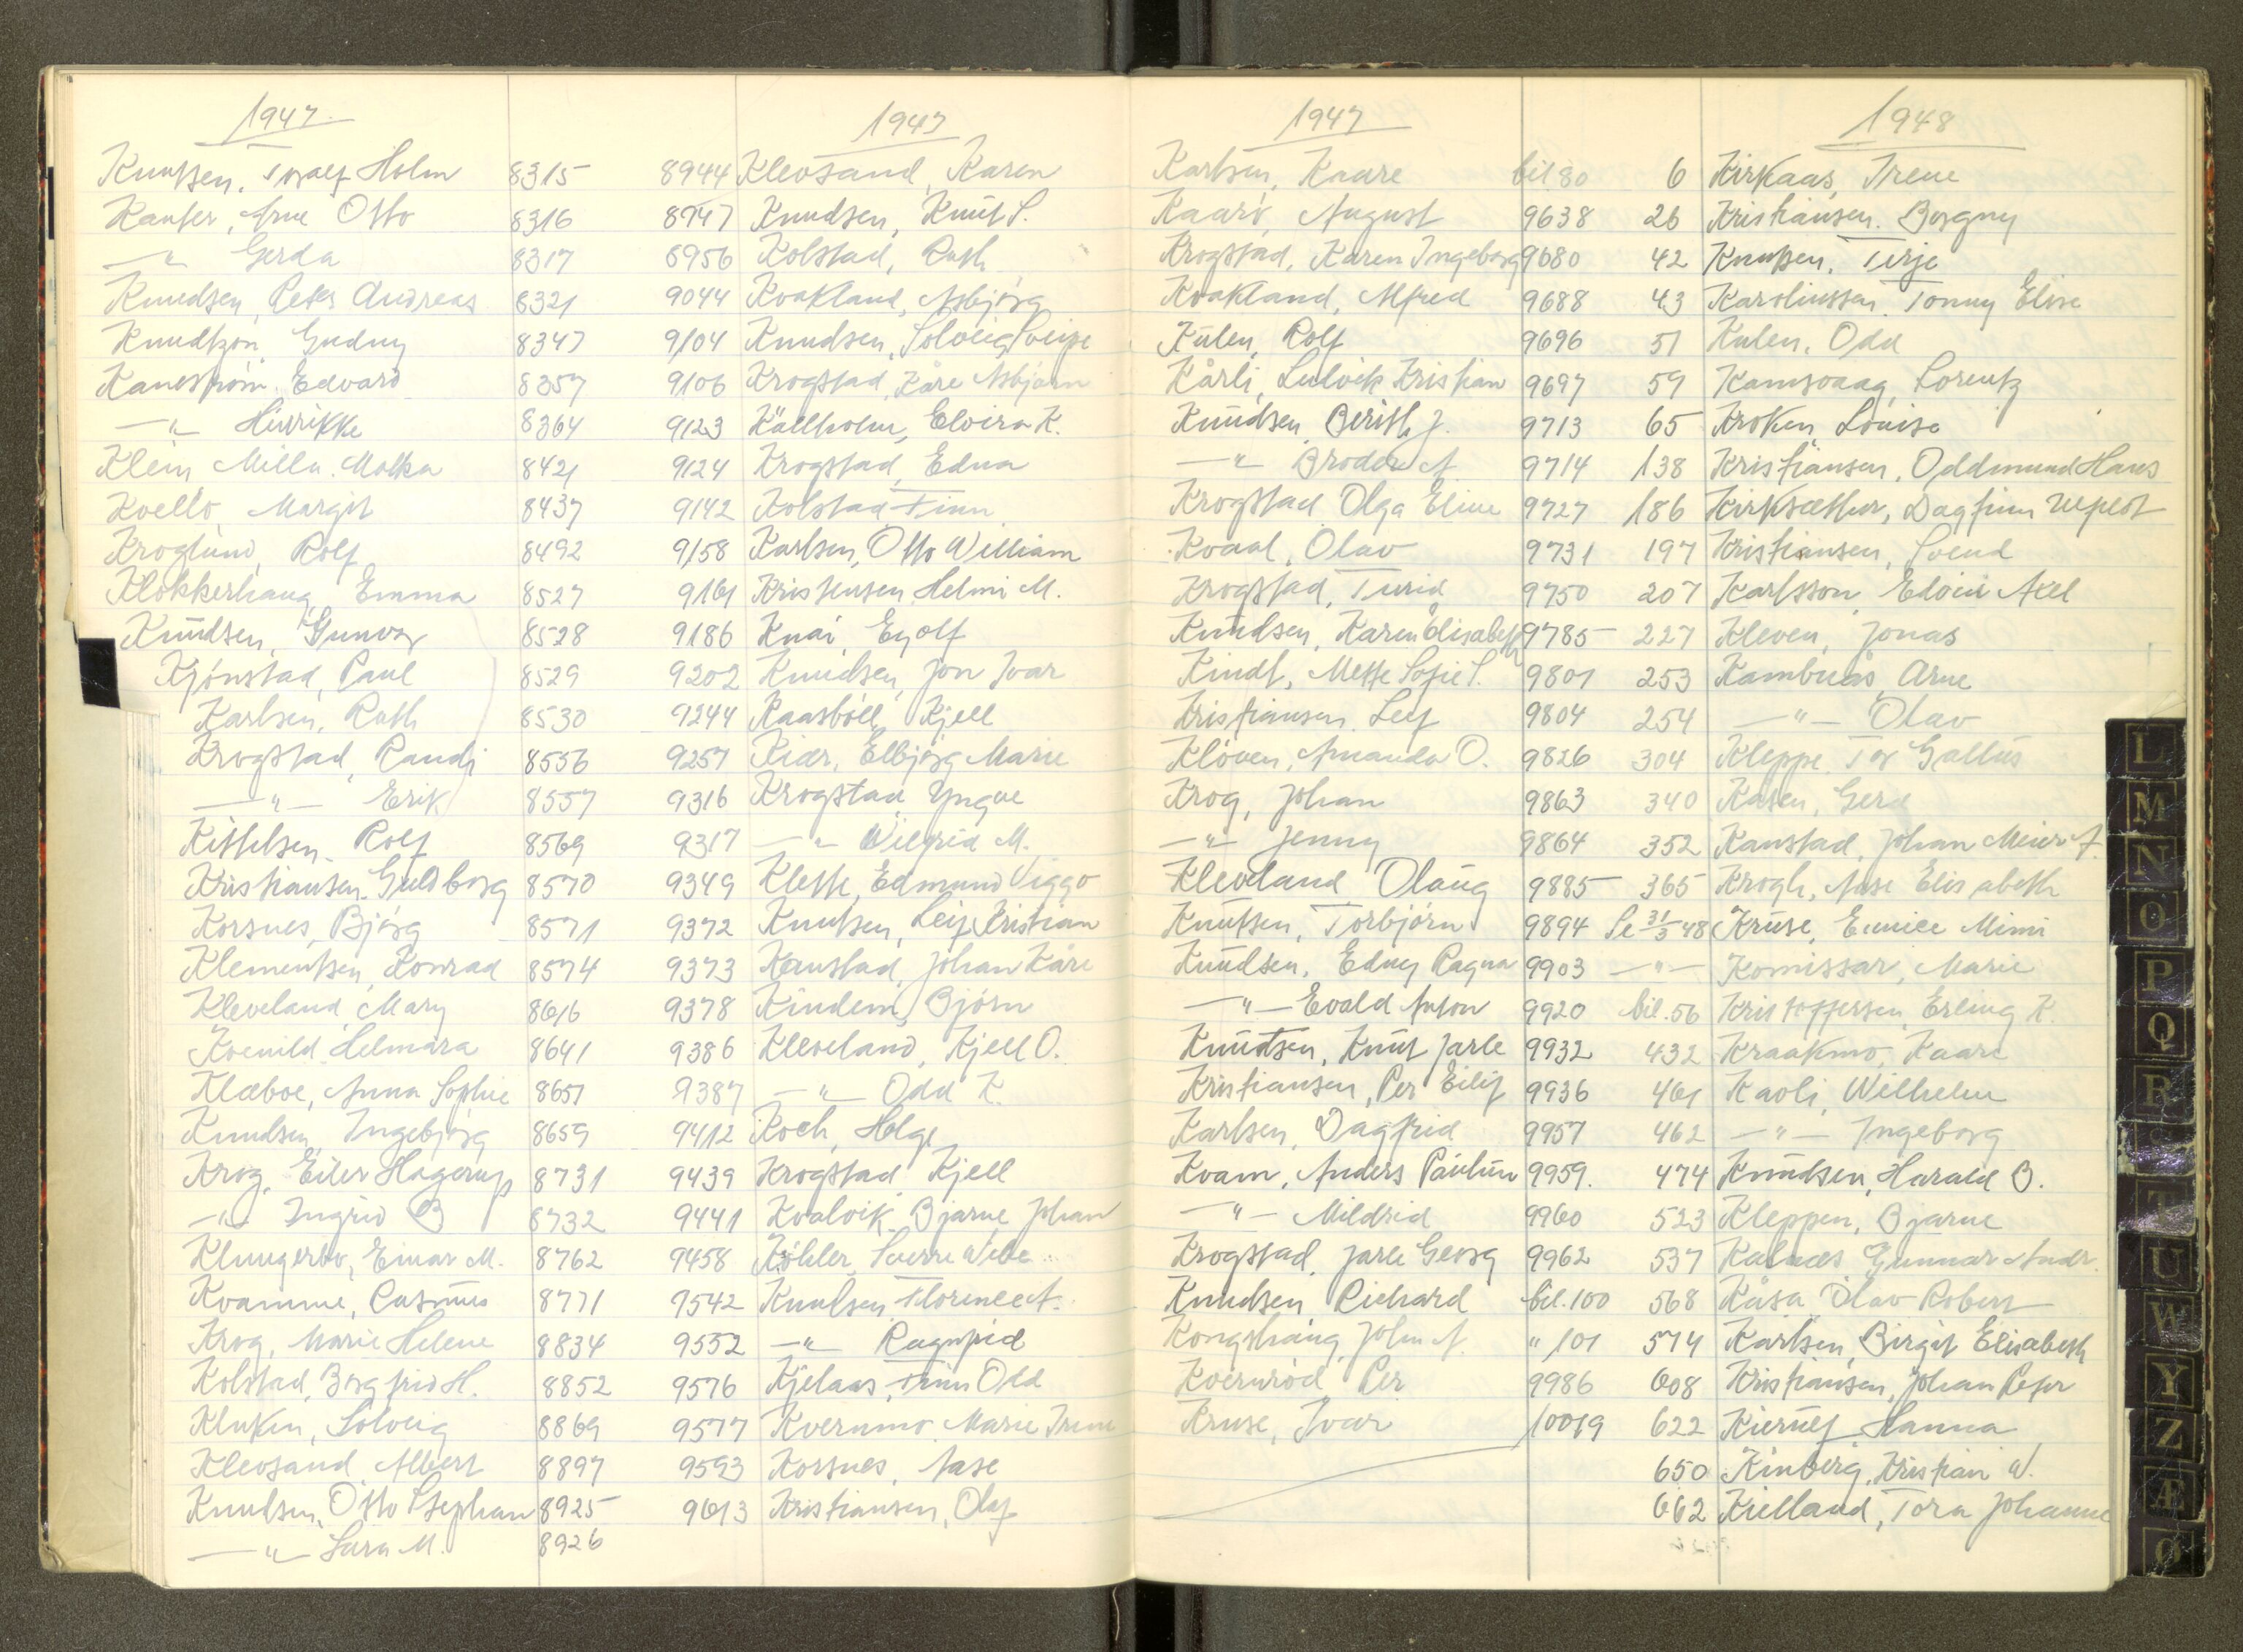 1947
Knutsen, Toralf Holm 8315
Kanter, Arne Otto 8316
—"— Gerda 8317
Knudsen, Peter Andreas 8321
Knudtzon, Gudny 8347
Kanestrøm, Edvard 8357
—"— Hinrikke 8364
Klein, Mella Malka 8421
Kvello, Margit 8437
Kroglund, Rolf 8492
Klokkerhaug, Emma 8527
Knudsen, Gunvor 8528
Kjønstad, Paul 8529
Karlsen, Ruth 8530
Krogstad, Randi 8556
—"— Erik 8557
Kittelsen, Rolf 8569
Kristiansen, Guldborg 8570
Korsnes, Bjørg 8571
Klementsen, Konrad 8574
Kleveland, Mary 8616
Kvenild, Helmara 8641
Klæboe, Anna Sophie 8657
Knudsen, Ingebjørg 8659
Krog, Eiler Hagerup 8731
—"— Ingrid B 8732
Klungerbo, Einar M. 8762
Kvamme, Rasmus 8771
Krog, Marie Helene 8834
Kolstad, Borgfrid H. 8852
Kluken, Solveig 8869
Klevsand, Albert 8897
Knutsen, Otto Stephan 8925
—"— Sara M. 8926
1947
8944 Klevsand, Karen
8947 Knudsen, Knut S.
8956 Kolstad, Ruth
9044 Kvakland, Asbjørg
9104 Knudsen, Solveig
9106 Krogstad, Kåre Asbjørn
9123 Källholm, Elvira K.
9124 Krogstad, Edna
9142 Kolstad Finn
9158 Karlsen, Otto William
9161 Kristensen, Helmi M.
9186 Knai, Eyolf
9202 Knudsen, Jon Ivar
9244 Raasbøll, Kjell
9257 Kiær, Elbjørg Marie
9316 Krogstad, Yngve
9317 —"— Wilfrid M.
9349 Klette, Edmund Viggo
9372 Knutsen, Leif Kristian
9373 Kanstad, Johan Kåre
9378 Kindem, Bjørn
9386 Kleveland, Kjell O.
9387 —"— Odd K.
9412 Koch, Helge
9439 Krogstad, Kjell
9441 Kvalvik, Bjarne Johan
9458 Köhler, Sverre Wibe
9542 Knutsen, Florence A.
9552 —"— Ragnfrid
9576 Kjelaas, Finn Odd
9577 Kvernmo, Marie Irene
9593 Korsnes, Aase
9613 Kristiansen, Olaf
1947
Karlsen, Kaare bil 80
Kaarø, August 9638
Krogstad, Karen Ingeborg 9680
Kvakland, Alfred 9688
Kulen, Rolf 9696
Kårli, Ludvik Kristian 9697
Knudsen, Berith J. 9713
—"— Broder A. 9714
Krogstad Olga Eline 9727
Kvaal, Olav 9731
Krogstad, Turid 9750
Knudsen, Karen Elisabeth 9785
Kindt, Mette Sofie S. 9801
Kristiansen, Leif 9804
Kløven, Amanda O. 9826
Krog, Johan 9863
—"— Jenny 9864
Kleveland Olaug 9885
Knutsen, Torbjørn 9894
Knudsen, Edny Ragna 9903
—"— Evald Anton 9920
Knudtsen, Knut Jarle 9932
Kristiansen, Per Eilif 9936
Karlsen, Dagfrid 9957
Kvam, Anders Paulun 9959.
—"— Mildrid 9960
Krogstad, Jarle Georg 9962
Knudsen Richard bil. 100
Kongshaug, John A. " 101
Kvernrød Per 9986
Kruse, Ivar 10019
1948
6 Kirkaas, Irene
26 Kristiansen, Borgny
42 Knutsen, Terje
43 Karolinssen, Tonny Elise
51 Kulen, Odd
59 Kamsvaag, Lorentz
65 Kroken, Louise
138 Kristiansen, Oddmund Hans
186 Kirksæther, Dagfinn
197 Kristiansen, Svend
207 Karlsson, Edvin Axel
227 Kleven, Jonas
253 Kambuås, Arne
254 —"— Olav
304 Kleppe, Tor Gallus
340 Kåsen, Gerd
352 Kanstad, Johan Meier A.
365 Krogh, Aase Elisabeth
Se 31/3 48 Kruse, Eunice Mimi
—"— Komissar, Marie
bil. 56 Kristoffersen, Erling K.
432 Kraakmo, Kaare
461 Kavli, Wilhelm
462 —"— Ingeborg
474 Knudsen, Harald B.
523 Kleppen, Bjarne
537 Kalnæs Gunnar Andr.
568 Kåsa, Olav Robert
574 Karlsen, Birgit Elisabeth
608 Kristiansen, Johan Peter
622 Kierulf, Hanna
650 Kinberg, Kristian W.
662 Kielland, Tora Johanne
L
M
N
O
P
Q
R
S
T
U
W
Y
Z
Æ
Ø